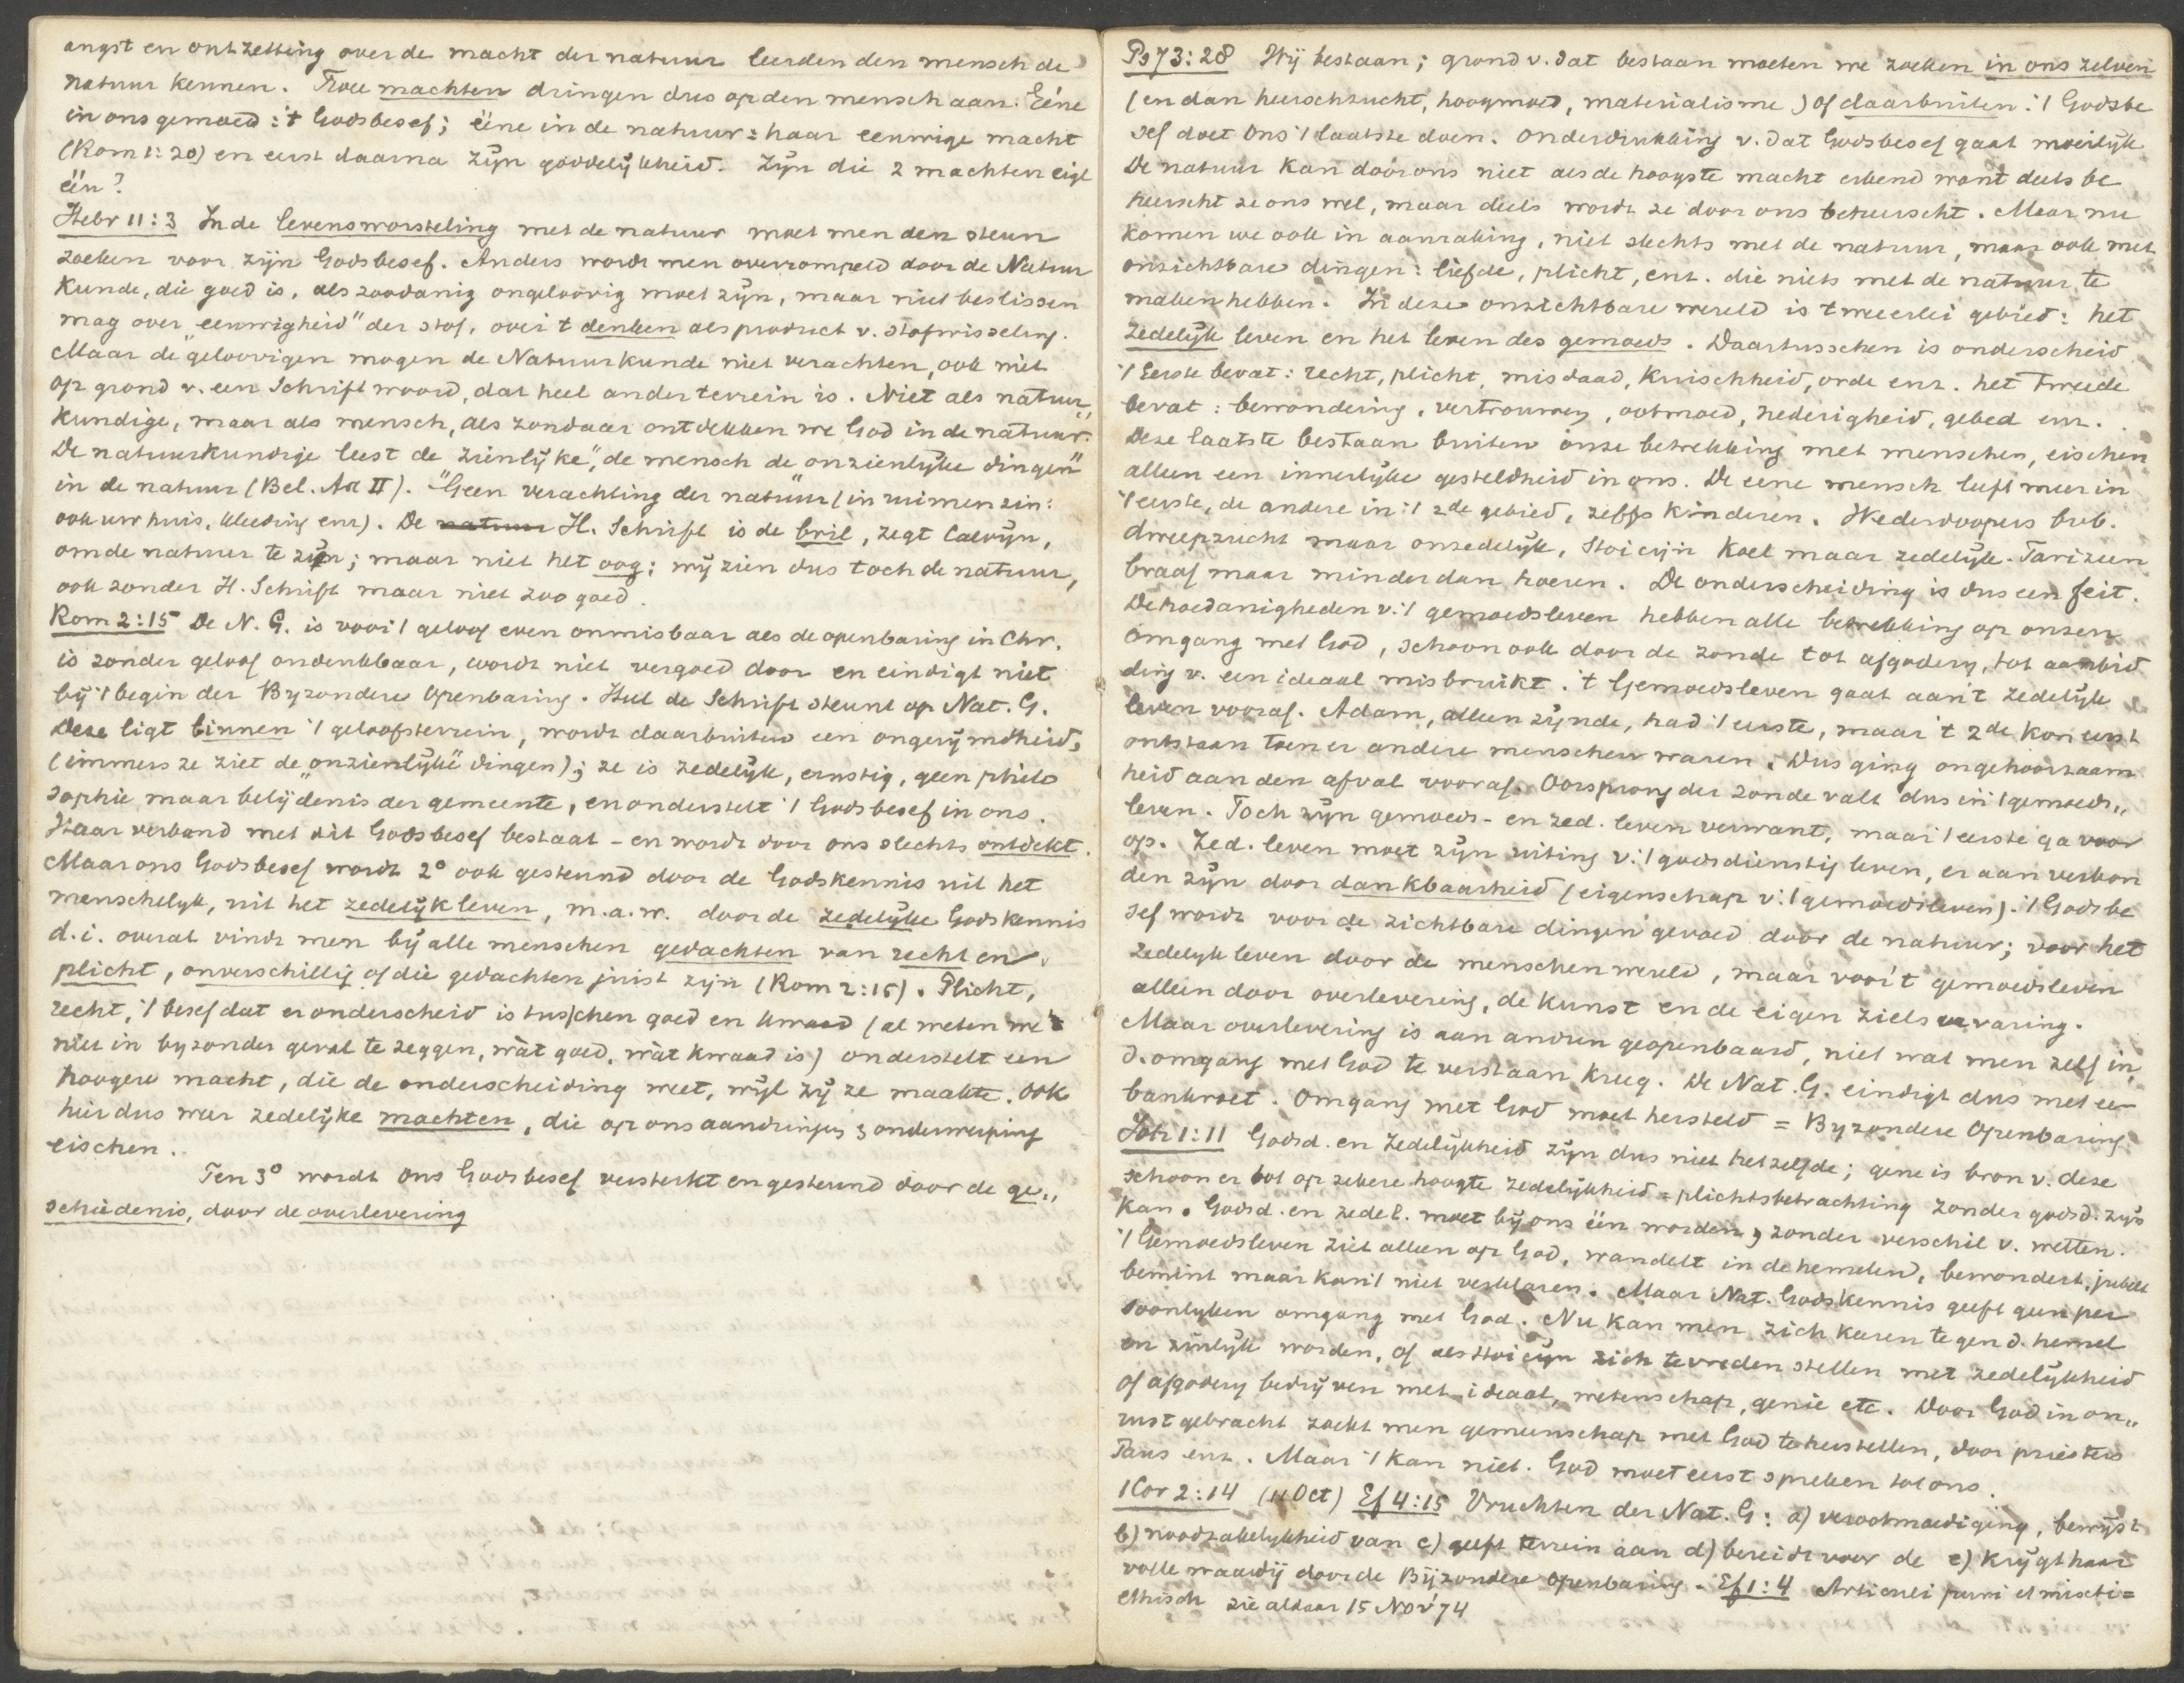 angst en ontzetting over de macht der natuur leerden den mensch de
natuur kennen. Twee machten dringen dus op den mensch aan. Eéne
in ons gemoed: 't Godsbesef; ééne in de natuur: haar eeuwige macht
(Rom 1:20) en eerst daarna zijn goddelijkheid. Zijn die 2 machten eigl
één?
Hebr 11:3 In de levensworsteling met de natuur moet men den steun
zoeken voor zijn Godsbesef. Anders wordt men overrompeld door de Natuur
kunde, die goed is, als zoodanig ongeloovig moet zijn, maar niet beslissen
mag over "eeuwigheid" der stof, over 't denken als product v. stofwisseling.
Maar de geloovigen mogen de Natuurkunde niet verachten, ook niet
op grond v. een Schriftwoord, dat heel ander terrein is. Niet als natuur„
kundige, maar als mensch, als zondaar ontdekken we God in de natuur.
De natuurkundige leest de zienlijke", de mensch de onzienlijke dingen"
in de natuur (Bel. Art II). Geen verachting der natuur (in ruimen zin:
ook uw huis, kleeding enz). De natuur H. Schrift is de bril, zegt Calvijn,
om de natuur te zien; maar niet het oog: wij zien dus toch de natuur,
ook zonder H. Schrift maar niet zoo goed.
Rom 2:15 De N. G. is voor 't geloof even onmisbaar als de openbaring in Chr.
is zonder geloof ondenkbaar, wordt niet vergoed door en eindigt niet
bij 't begin der Byzondere Openbaring. Heel de Schrift steunt op Nat. G.
Deze ligt binnen 't geloofsterrein, wordt daarbuiten een ongerijmdheid,
(immers ze ziet de "onzienlijke" dingen); ze is zedelijk, ernstig, geen philo
sophie maar belijdenis der gemeente, en onderstelt 't Godsbesef in ons.
Haar verband met dit Godsbesef bestaat - en wordt door ons slechts ontdekt.
Maar ons Godsbesef wordt 2° ook gesteund door de Godskennis uit het
menschelyk, uit het zedelijk leven, m.a.w. door de zedelijke Godskennis
d.i. overal vindt men bij alle menschen gedachten van recht en
plicht, onverschillig of die gedachten juist zijn (Rom 2:15). Plicht,
recht, 't besef dat er onderscheid is tusschen goed en kwaad (al weten we 't
niet in byzonder geval te zeggen, wàt goed, wàt kwaad is) onderstelt een
hoogere macht, die de onderscheiding weet, wijl zij ze maakte. Ook
hier dus weer zedelijke machten, die op ons aandringen & onderwerping
eischen.
Ten 3° wordt ons Godsbesef versterkt en gesteund door de ge„
schiedenis, door de overlevering
Ps 73:28 Wij bestaan; grond v. dat bestaan moeten we zoeken in ons zelven
(en dan heerschzucht, hoogmoed, materialisme) of daarbuiten: 't Godsbe
sef doet ons 't laatste doen. Onderdrukking v. dat Godsbesef gaat moeilijk
De natuur kan door ons niet als de hoogste macht erkend want deels be
heerscht ze ons wel, maar deels wordt ze door ons beheerscht. Maar nu
komen we ook in aanraking, niet slechts met de natuur, maar ook met
onzichtbare dingen: liefde, plicht, enz. die niets met de natuur te
maken hebben. In deze onzichtbare wereld is tweeerlei gebied: het
zedelijk leven en het leven des gemoeds. Daartusschen is onderscheid.
't Eerste bevat: recht, plicht, misdaad, kuischheid, orde enz. het tweede
bevat: bewondering, vertrouwen, ootmoed, nederigheid, gebed enz.
Deze laatste bestaan buiten onze betrekking met menschen, eischen
alleen een innerlijke gesteldheid in ons. De eene mensch leeft meer in
't eerste, de andere in 't 2de gebied, zelfs kinderen. Wederdoopers bv.
dweepzucht maar onzedelijk, Stoicijn koel maar zedelijk. Farizeen
braaf maar minder dan hoeren. De onderscheiding is dus een feit.
De hoedanigheden v. 't gemoedsleven hebben alle betrekking op onzen
omgang met God, schoon ook door de zonde tot afgodery, tot aanbid
ding v. een ideaal misbruikt. 't Gemoedsleven gaat aan 't zedelijk
leven vooraf. Adam, alleen zijnde, had 't eerste, maar 't 2de kon eerst
ontstaan toen er andere menschen waren. Dus ging ongehoorzaam
heid aan den afval vooraf. Oorsprong der zonde valt dus in 't gemoeds„
leven. Toch zijn gemoeds- en zed. leven verwant, maar 't eerste ga voor
op. Zed. leven moet zijn uiting v. 't godsdienstig leven, er aan verbon
den zijn door dankbaarheid (eigenschap v. 't gemoedsleven). 't Godsbe
sef wordt voor de zichtbare dingen gevoed door de natuur; voor het
zedelyk leven door de menschenwereld, maar voor 't gemoedsleven
alleen door overlevering, de kunst en de eigen zielservaring.
Maar overlevering is aan andren geopenbaard, niet wat men zelf in
d. omgang met God te verstaan kreeg. De Nat. G. eindigt dus met een
bankroet. Omgang met God moet hersteld = Byzondere Openbaring
Joh 1:11 Godsd. en Zedelijkheid zijn dus niet hetzelfde; gene is bron v. deze
schoon er tot op zekere hoogte zedelijkheid = plichtsbetrachting zonder godsd. zijn
kan. Godsd. en zedel. moet bij ons één worden, zonder verschil v. wetten.
't Gemoedsleven ziet alleen op God, wandelt in de hemelen, bewondert, jubelt
bemint maar kan 't niet verklaren. Maar Nat. Godskennis geeft geen per
soonlyken omgang met God. Nu kan men zich keeren tegen d. hemel
en zinlijk worden, of als stoicijn zich tevreden stellen met zedelijkheid
of afgodery bedrijven met ideaal, wetenschap, genie etc. Door God in on„
rust gebracht zoekt men gemeenschap met God te herstellen, door priesters
Paus enz. Maar 't kan niet. God moet eerst spreken tot ons.
1 Cor 2:14 (11 Oct) Ef 4:15 Vruchten der Nat. G: a) verootmoediging, bewijst
b) noodzakelykheid van c) geeft terrein aan d) bereidt voor de e) krijgt haar
volle waardij door de Bijzondere Openbaring. Ef 1:4 Articuli puri et mixti =
ethisch zie aldaar 15 Nov '74